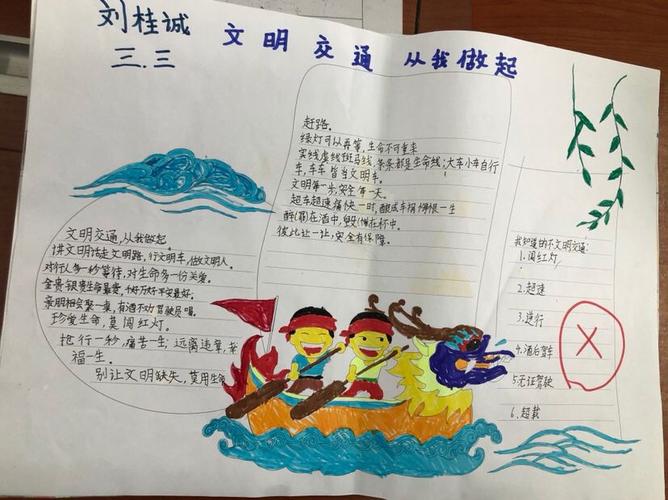 刘桂诚
三.三
文明交通从我做起
赶路。
绿灯可以再等,生命不可重来
实线虚线斑马线,条条都是生命线;大车小车自行
车,车车皆当文明车。
文明第一步,安全第一天。
超车超速痛快一时,酿成车祸悔恨一生
醉(罪)在酒中,毁(悔)在杯中。
彼此让一让,安全有保障。
文明交通,从我做起。
讲文明话走文明路,行文明车,做文明人。
对行人多一秒等待,对生命多一份关爱。
金贵银贵生命最贵,千好万好平安最好。
亲朋相会聚一桌,有酒不劝驾驶员喝。
珍爱生命,莫闯红灯。
抢行一秒,痛苦一生;远离违章,幸
福一生。
别让文明缺失,莫用生命
我知道的不文明交通:
1.闯红灯
2.超速
3.逆行
4.酒后驾车
5.无证驾驶
6.超载